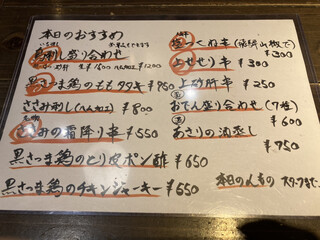 本日のおすすめ
刺し盛り合わせ
¥1200
黒さつま鶏のももタタキ ¥950
ささみ刺し(ハム加工) ¥800
ささみの霜降り串 ¥550
黒さつま鶏のとり皮ポン酢 ¥650
黒さつま鶏のチキンジャーキー ¥650
つくね串
¥300
上せせり串 ¥300
上砂肝串 ¥250
おでん盛り合わせ(7種)
¥600
あさりの酒蒸し
¥750
本日の
スタッフまで